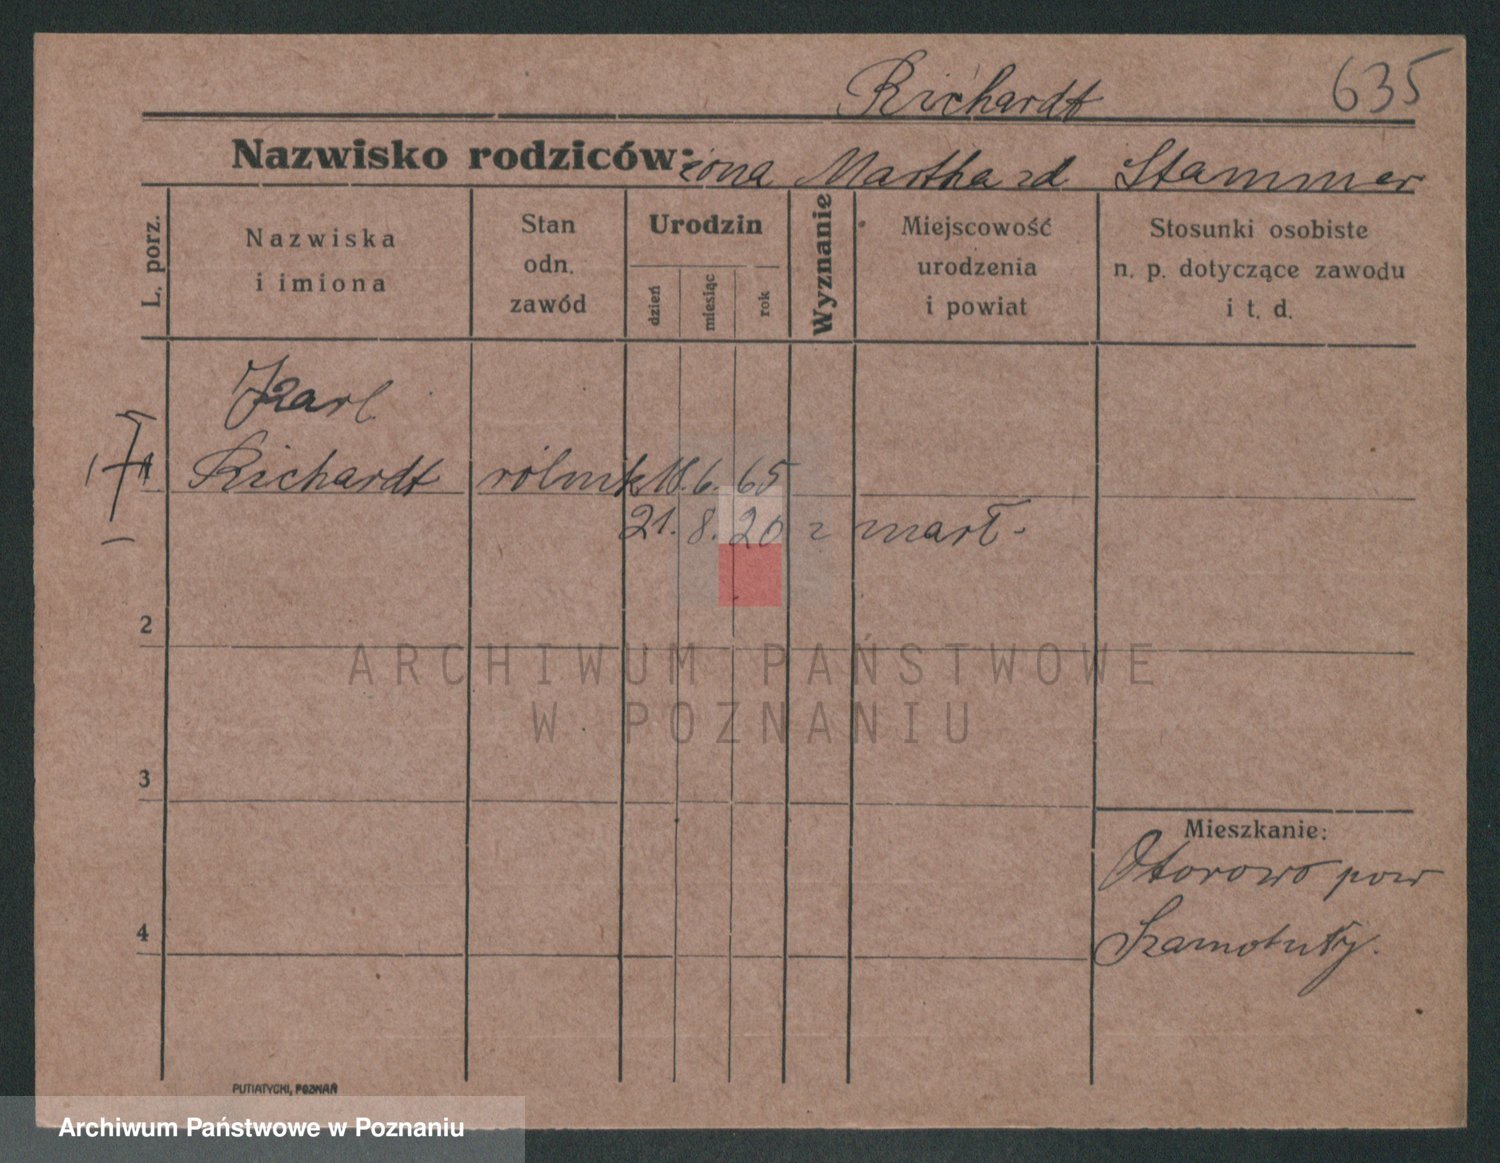 Richardt 635
Nazwisko rodziców: żona Martha zd Stammer
L. porz.
Nazwiska
i imiona
Stan
odn.
zawód
Urodzin
dzień
miesiąc
rok
Wyznanie
Miejscowość
urodzenia
i powiat
Stosunki osobiste
n. p. dotyczące zawodu
i t. d.
Karl
1 Richardt rolnik 18. 6. 65
21. 8. 20 zmarł.
2
3
4
Mieszkanie:
Otorowo pow
Szamotuły.
PUTIATYCKI, POZNAŃ
ARCHIWUM PAŃSTWOWE
W POZNANIU
Archiwum Państwowe w Poznaniu